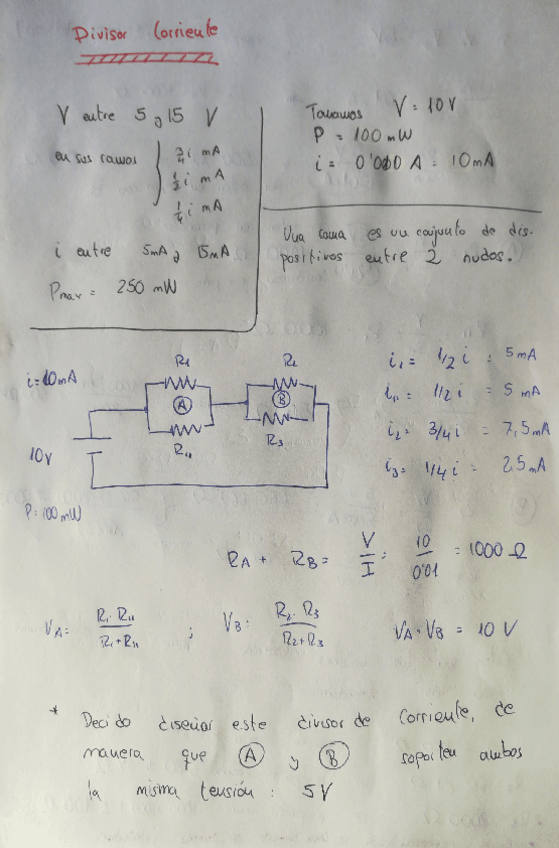 Divisor Corriente
V entre 5 y 15 V
en sus ramas
3/4 i mA
1/2 i mA
1/4 i mA
i entre 5mA y 15mA
Pmax = 250 mW
Tomamos V = 10V
P = 100mW
i = 0'010 A = 10mA
Una rama es un conjunto de dis-
positivos entre 2 nudos.
i = 10mA
10V
P = 100 mW
R1
A
R11
R2
B
R3
i1 = 1/2 i = 5mA
i11 = 1/2 i = 5 mA
i2 = 3/4 i = 7,5mA
i3 = 1/4 i = 2,5mA
RA + RB = V/I = 10/0'01 = 1000 Ω
VA = R1·R11/R1+R11 ; VB = R2·R3/R2+R3 VA·VB = 10 V
* Decido diseñar este divisor de corriente, de
manera que A y B soporten ambos
la misma tensión: 5V